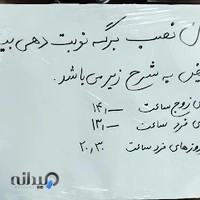 نصب برگه نوبت دهی
به شرح زیر می باشد.
زوج ساعت ۱۴
فرد ساعت ۱۳
روزهای فرد ساعت ۲۰،۳۰
میدانه